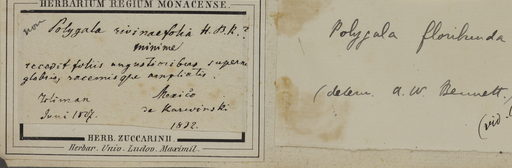 HERBARIUM REGIUM MONACENSE.
non Polygala rivinaefolia H.B.K.?
minime
recedit foliis angustioribus superne
glabris, racemisque ampliatis.
Toliman Mexico
Juni 1827. de Karwinski
1832.
HERB. ZUCCARINII
Herbar. Univ. Ludov. Maximil.
Polygala floribunda
(determ. A. W. Bennett.)
(vid.